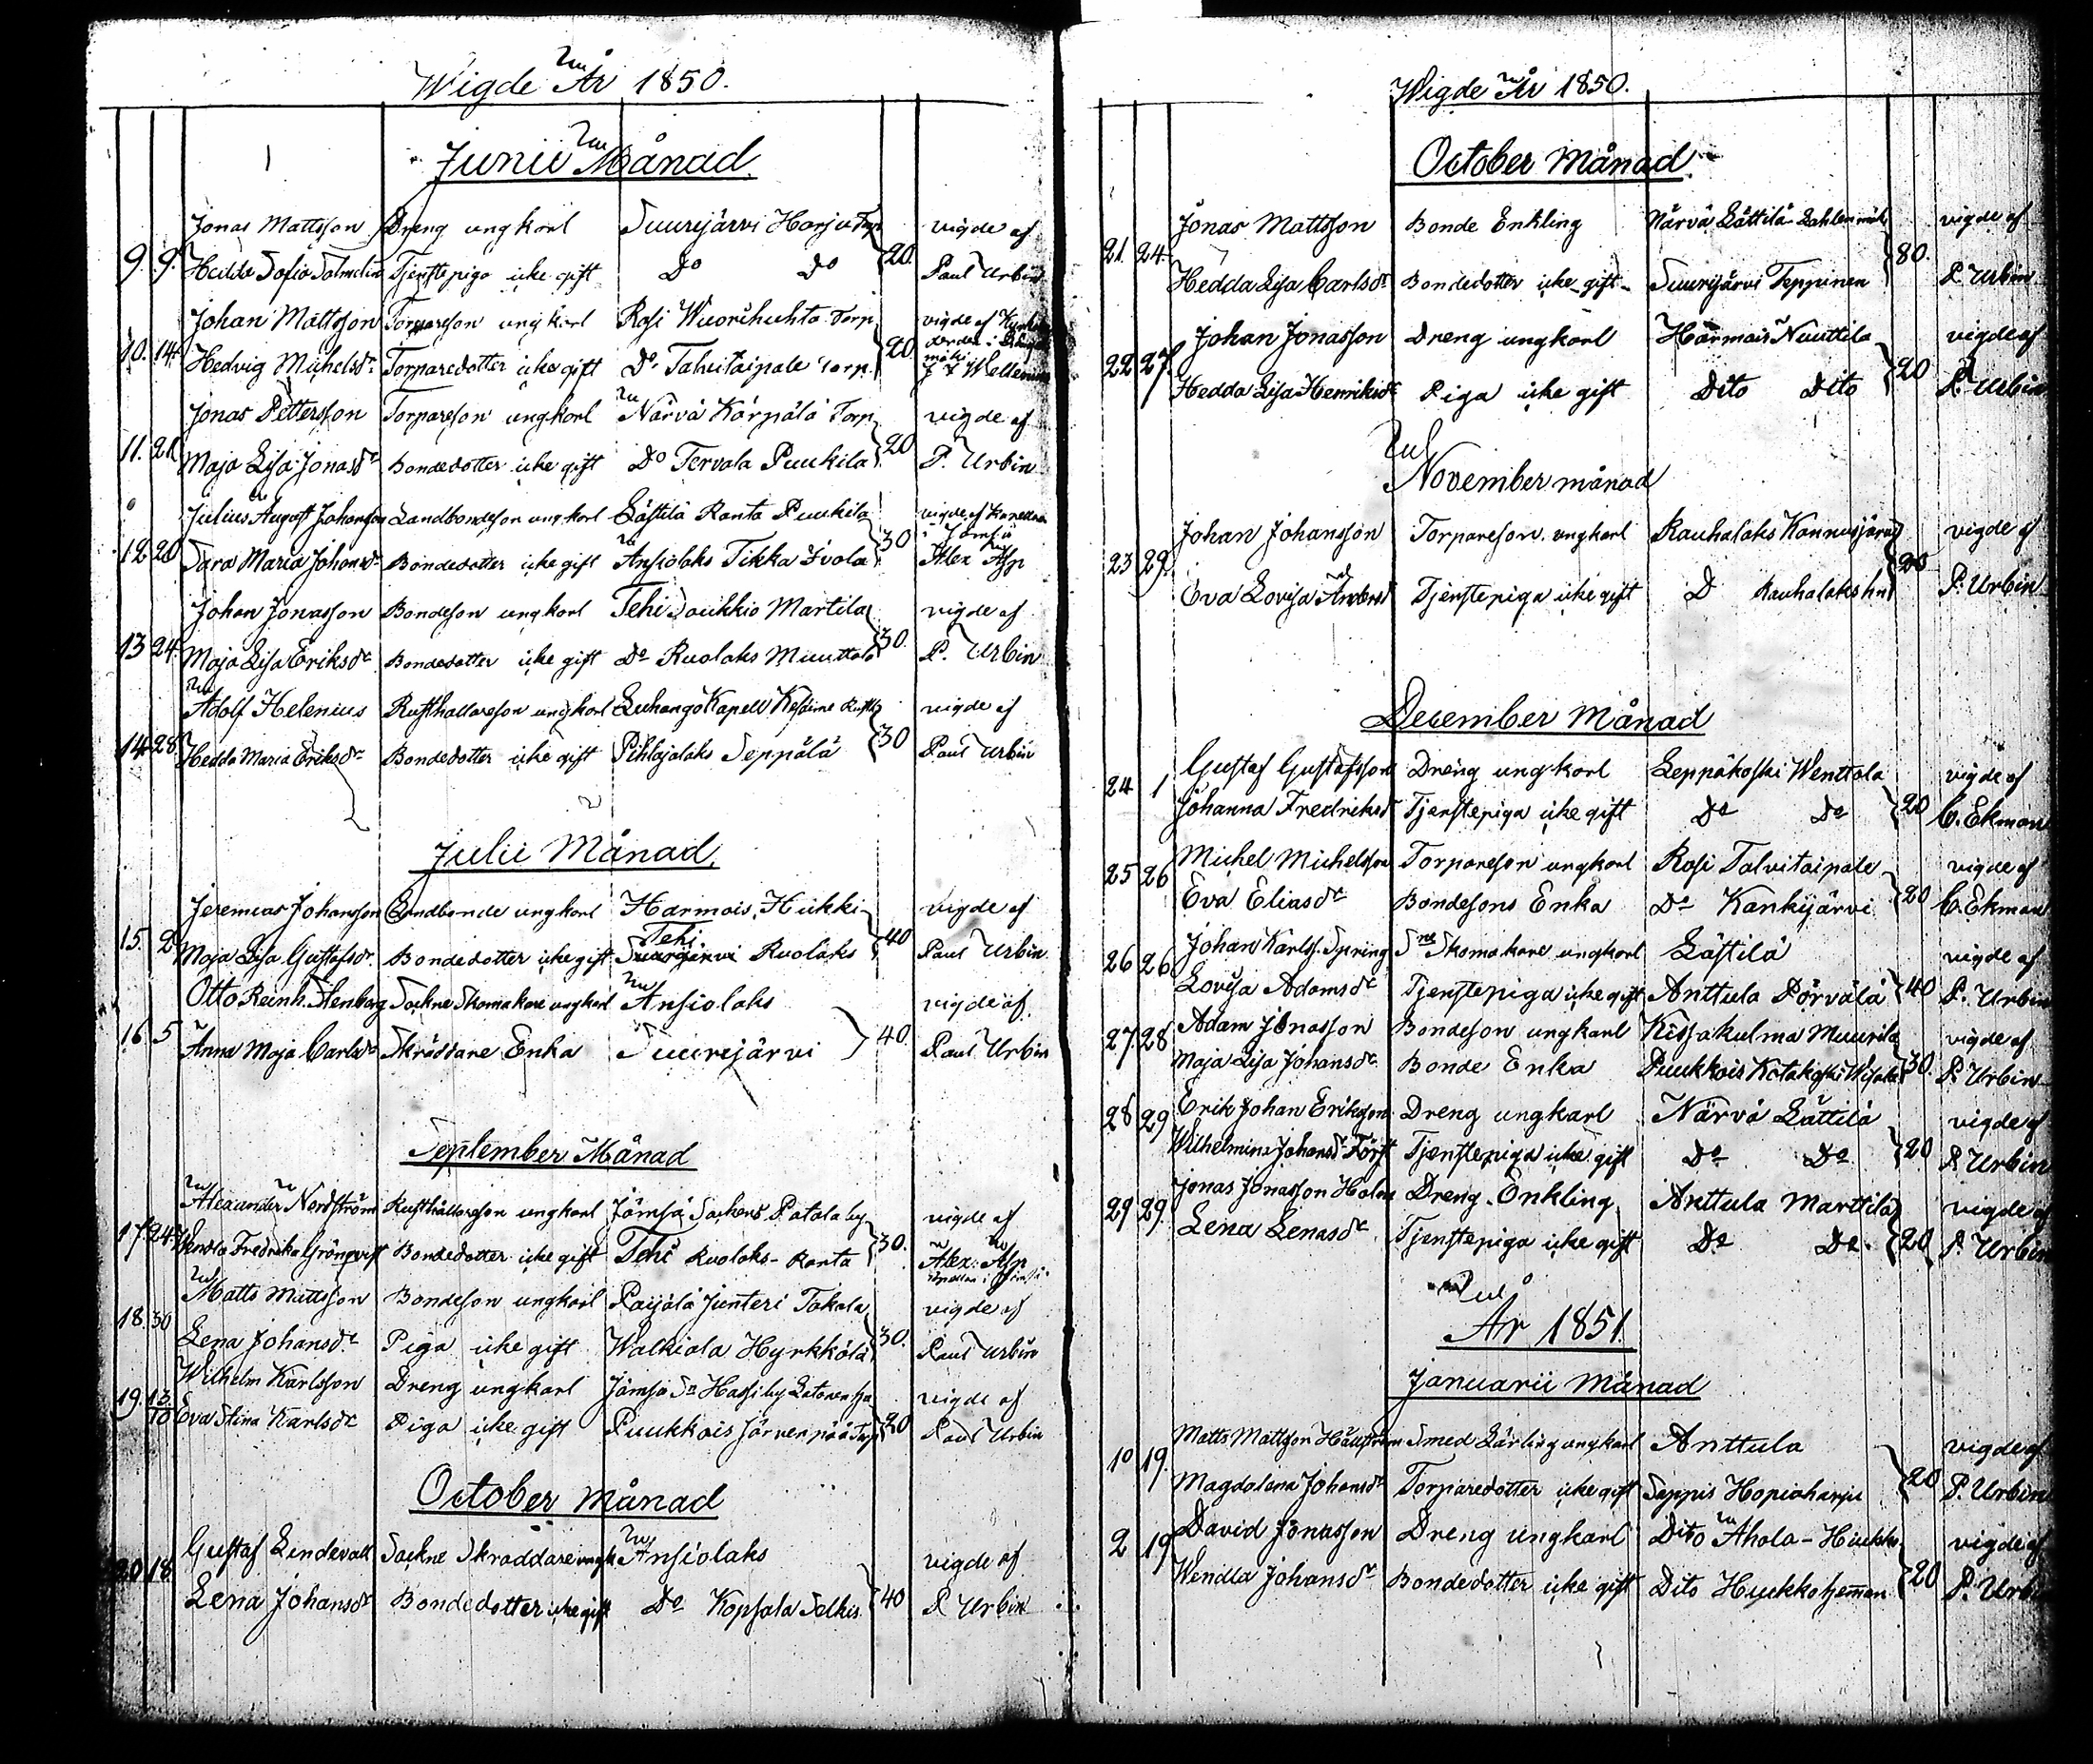 Wigde År 1850.
Junii Månad.
Jonas Mattsson Dreng ungkarl Suurejärvi Harju Torp vigde af
9. 9. Hedda Sofia Tjenstepiga icke gift Do Do 20. Paul Urbin
Johan Mattsson Torpareson ungkarl Rasi Wuorihuhta Torp vigde af
10. 14. Hedvig Michelsdr Torparedotter icke gift Do Talvitaipale Torp. 20.
Jonas Pettersson Torpareson ungkarl Närvä Kärpälä Torp vigde af
11. 21. Maja Lisa Jonasdr Bondedotter icke gift Do Tervala Puukila 20 P. Urbin
Julius August Johansson Landbondeson ungkarl Lästilä Ranta Puukila vigde af
12 20 Sara Maria Johansdr Bondedotter icke gift Ansiolaks Tikka Isola 30 Alex Asp
Johan Jonasson Bondeson ungkarl Tehi Martila vigde af
13 24. Maja Lisa Eriksdr Bondedotter icke gift Do Ruolaks Muuttola 30. P. Urbin
Adolf Helenius Rusthallareson ungkarl Luhango Kapell vigde af
14 28 Hedda Maria Eriksdr Bondedotter icke gift Pihlajalaks Seppälä 30 Paul Urbin
Julii Månad.
Jeremias Johansson Landbonde ungkarl Harmois, Hukki vigde af
Tehi
15. 2 Maja Lisa Gustafsdr. Bondedotter icke gift Suurejärvi Ruolaks 40 Paul Urbin.
Otto Reinh. Stenberg Sockne Skomakare ungkarl Ansiolaks vigde af
16 5 Anna Maja Carlsdr Skräddare Enka Suurejärvi 40. Paul Urbin
September Månad
Alexander Nordström Rusthållareson ungkarl Jämsä Sockens Patala by vigde af
17. 24. Wendla Fredrika Grönqvist Bondedotter icke gift Tehi Ruolaks-Ranta 30. Alex: Asp
Matts Mattsson Bondeson ungkarl Paijälä Junteri Takala vigde af
18. 30 Lena Johansdr Piga icke gift Walkiala Hyrkkölä 30. Paul Urbin
Wilhelm Karlsson Dreng ungkarl Jämsä Sn Hassi by vigde af
19. 13/10 Eva Stina Karlsdr Piga icke gift Puukkois Järvenpää Torp 20 Paul Urbin
October Månad
Gustaf Lindevall Sockne Skräddare ungk Ansiolaks vigde af
20 18 Lena Johansdr Bondedotter icke gift Do Kopsala Selkis 40 P. Urbin
Wigde År 1850.
October Månad.
Jonas Mattsson Bonde Enkling Närvä Lättilä vigde af
21. 24. Hedda Lisa Carlsdr Bondedotter icke gift Suurejärvi Teppinen 80. P. Urbin
Johan Jonasson Dreng ungkarl Harmois Nuuttila vigde af
22 27. Hedda Lisa Henriksdr Piga icke gift Dito Dito 20 P. Urbin
November månad
Johan Johansson Torpareson ungkarl Rauhalaks Kannusjärvi vigde af
23 29. Eva Lovisa Andersd Tjenstepiga icke gift D Rauhalaks 20 P. Urbin
December Månad
Gustaf Gustafsson Dreng ungkarl Leppäkoski Wenttola vigde af
24 1 Johanna Fredriksdr Tjenstepiga icke gift Do Do 20 C. Ekman
Michel Michelsson Torpareson ungkarl Rasi Talvitaipale vigde af
25 26 Eva Eliasdr Bondesons Enka Do Kankijärvi 20 C. Ekman
Johan Karlss. Spring Sne Skomakare ungkarl Lästilä vigde af
26 26 Lovisa Adamsdr Tjenstepiga icke gift Anttula Pärvälä 40 P. Urbin
Adam Jonasson Bondeson ungkarl Kissakulma Muurila vigde af
27 28 Maja Lisa Johansdr Bonde Enka Puukkois Kotakoski 30. P. Urbin
Erik Johan Eriksson Dreng ungkarl Närvä Lättilä vigde af
28 29 Wilhelmina Johansdr Först Tjenstepiga icke gift Do Do 20 P. Urbin
Jonas Jonasson Holm Dreng Enkling Anttula Marttila vigde af
29 29. Lena Lenasdr Tjenstepiga icke gift Do Do. 20 P. Urbin
År 1851.
Januarii Månad
Matts Mattsson Smed Lärling ungkarl Anttula vigde af
1o 19. Magdalena Johansdr Torparedotter icke gift Seppis Hopiaharju 20 P. Urbin
David Jonasson Dreng ungkarl Dito Ahola-Hiukko vigde af
2 19 Wendla Johansdr Bondedotter icke gift Dito Hiukko heman 20 P. Urbin